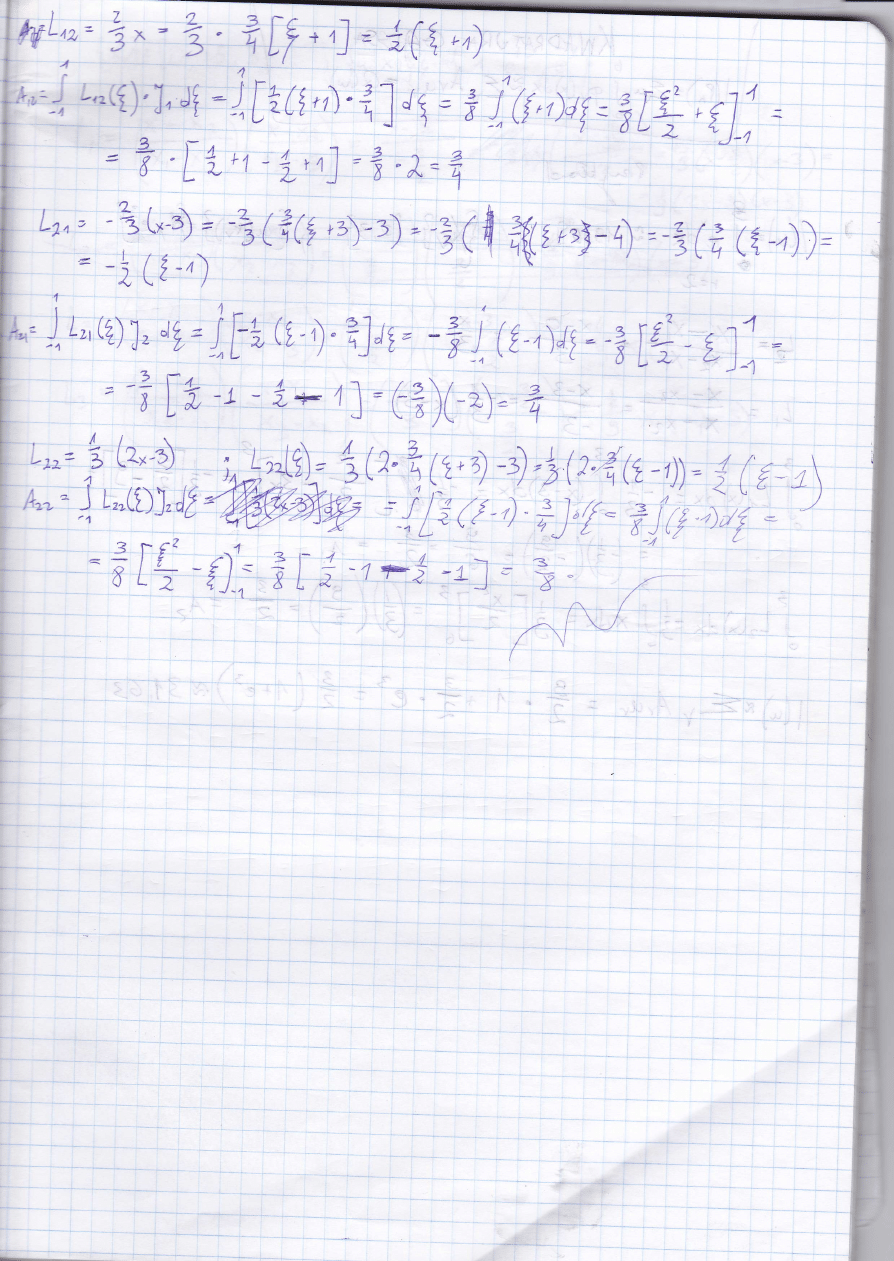 L₁₂ = 2/3 x = 2/3 · 3/4 [ξ + 1] = 1/2 (ξ + 1)
A₁₂ = ∫₋₁¹ L₁₂(ξ) · J₁ dξ = ∫₋₁¹ [1/2 (ξ+1) · 3/4] dξ = 3/8 ∫₋₁¹ (ξ+1) dξ = 3/8 [ξ²/2 + ξ]₋₁¹ =
= 3/8 · [1/2 + 1 - 1/2 + 1] = 3/8 · 2 = 3/4
L₂₁ = -2/3 (x-3) = -2/3 (3/4 (ξ+3) - 3) = -2/3 ( 3/4 (ξ+3) - 4) = -2/3 (3/4 (ξ-1)) =
= -1/2 (ξ-1)
A₂₁ = ∫₋₁¹ L₂₁(ξ) J₂ dξ = ∫₋₁¹ [-1/2 (ξ-1) · 3/4] dξ = -3/8 ∫₋₁¹ (ξ-1) dξ = -3/8 [ξ²/2 - ξ]₋₁¹ =
= -3/8 [1/2 - 1 - 1/2 - 1] = (-3/8)(-2) = 3/4
L₂₂ = 1/3 (2x-3) ; L₂₂(ξ) = 1/3 (2 · 3/4 (ξ+3) - 3) = 1/3 · (2 · 3/4 (ξ-1)) = 1/2 (ξ-1)
A₂₂ = ∫₋₁¹ L₂₂(ξ) J₂ dξ = = ∫₋₁¹ [1/2 (ξ-1) · 3/4] dξ = 3/8 ∫₋₁¹ (ξ-1) dξ =
= 3/8 [ξ²/2 - ξ]₋₁¹ = 3/8 [1/2 - 1 - 1/2 - 1] = 3/8 ·